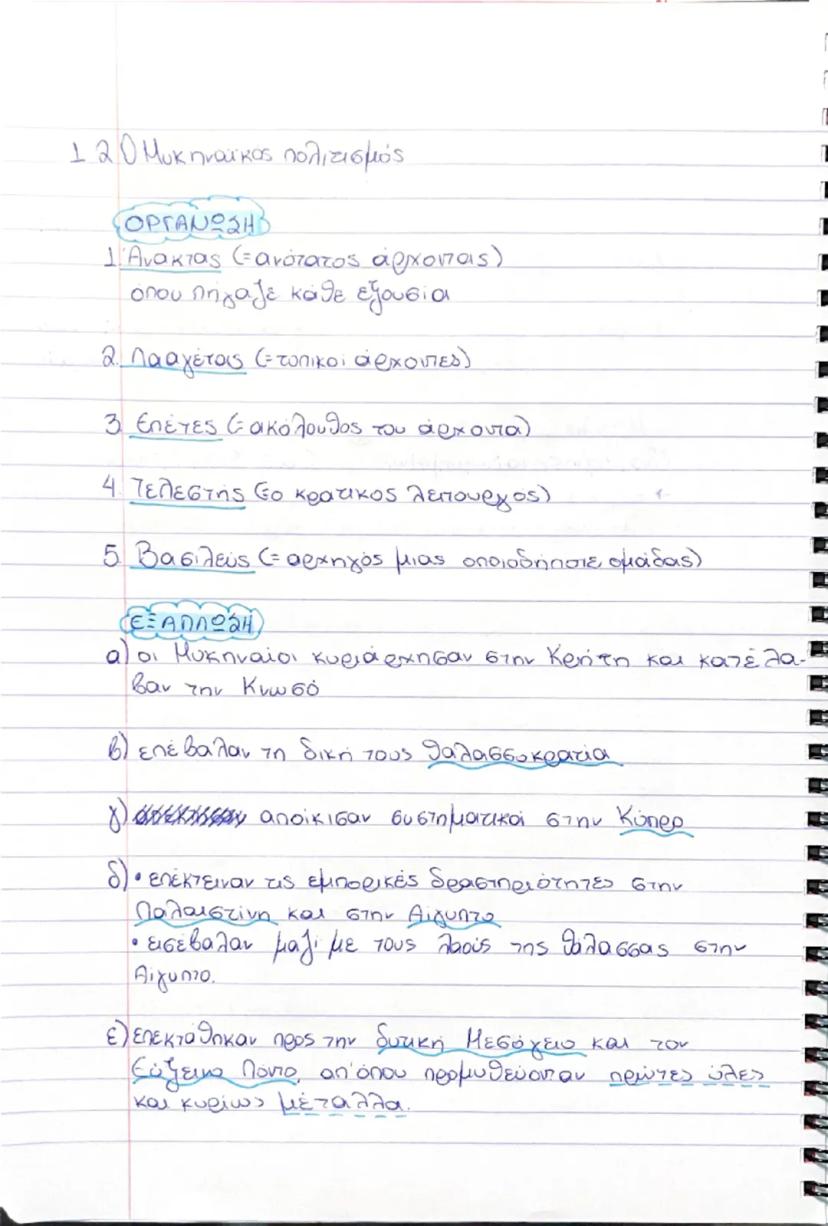 1 2 Ο Μυκηναϊκος πολιτισμός
ΟΡΓΑΝΩΣΗ
1. Άνακτας (= ανότατος άρχοντας)
όπου πήγαζε κάθε εξουσία
2. Λααγέτας (= τοπικοί άρχοντες)
3. Επέτες (= ακόλουθος του άρχοντα)
4. Τελεστής (= ο κρατικος λειτουργος)
5. Βασιλεύς (= αρχηγός μιας οποιοδήποτε ομάδας)
ΕΞΑΠΛΩΣΗ
α) οι Μυκηναίοι κυριάρχησαν στην Κρήτη και κατέλα-
βαν την Κνωσό
β) επέβαλαν τη δική τους θαλασσοκρατία
γ) αποίκισαν συστηματικοί στην Κύπρο
δ) • επέκτειναν τις εμπορικές δραστηριότητες στην
Παλαιστίνη και στην Αίγυπτο
• εισέβαλαν μαζί με τους λαούς της θάλασσας στην
Αίγυπτο.
ε) επεκτάθηκαν προς την δυτική Μεσόγειο και τον
Εύξεινο Πόντο, απ' όπου προμυθεύονταν πρώτες ύλες
και κυρίως μέταλλα.